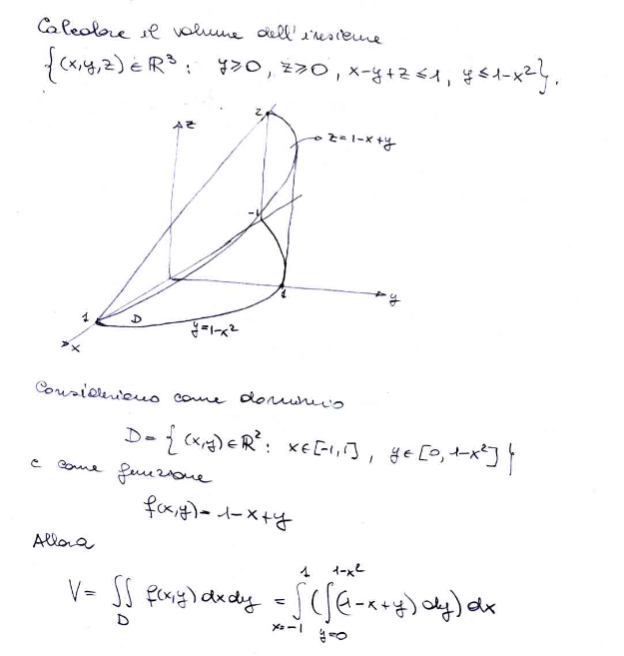 Calcolare il volume dell'insieme
{(x,y,z) ∈ ℝ³ : y ≥ 0, z ≥ 0, x-y+z ≤ 1, y ≤ 1-x²}.
z
2
z = 1-x+y
-1
1
D
1
y
y = 1-x²
x
Consideriamo come dominio
D = {(x,y) ∈ ℝ² : x ∈ [-1,1], y ∈ [0, 1-x²]}
e come funzione
f(x,y) = 1-x+y
Allora
V = ∬_D f(x,y) dxdy = ∫_{x=-1}^{1} (∫_{y=0}^{1-x²} (1-x+y) dy) dx